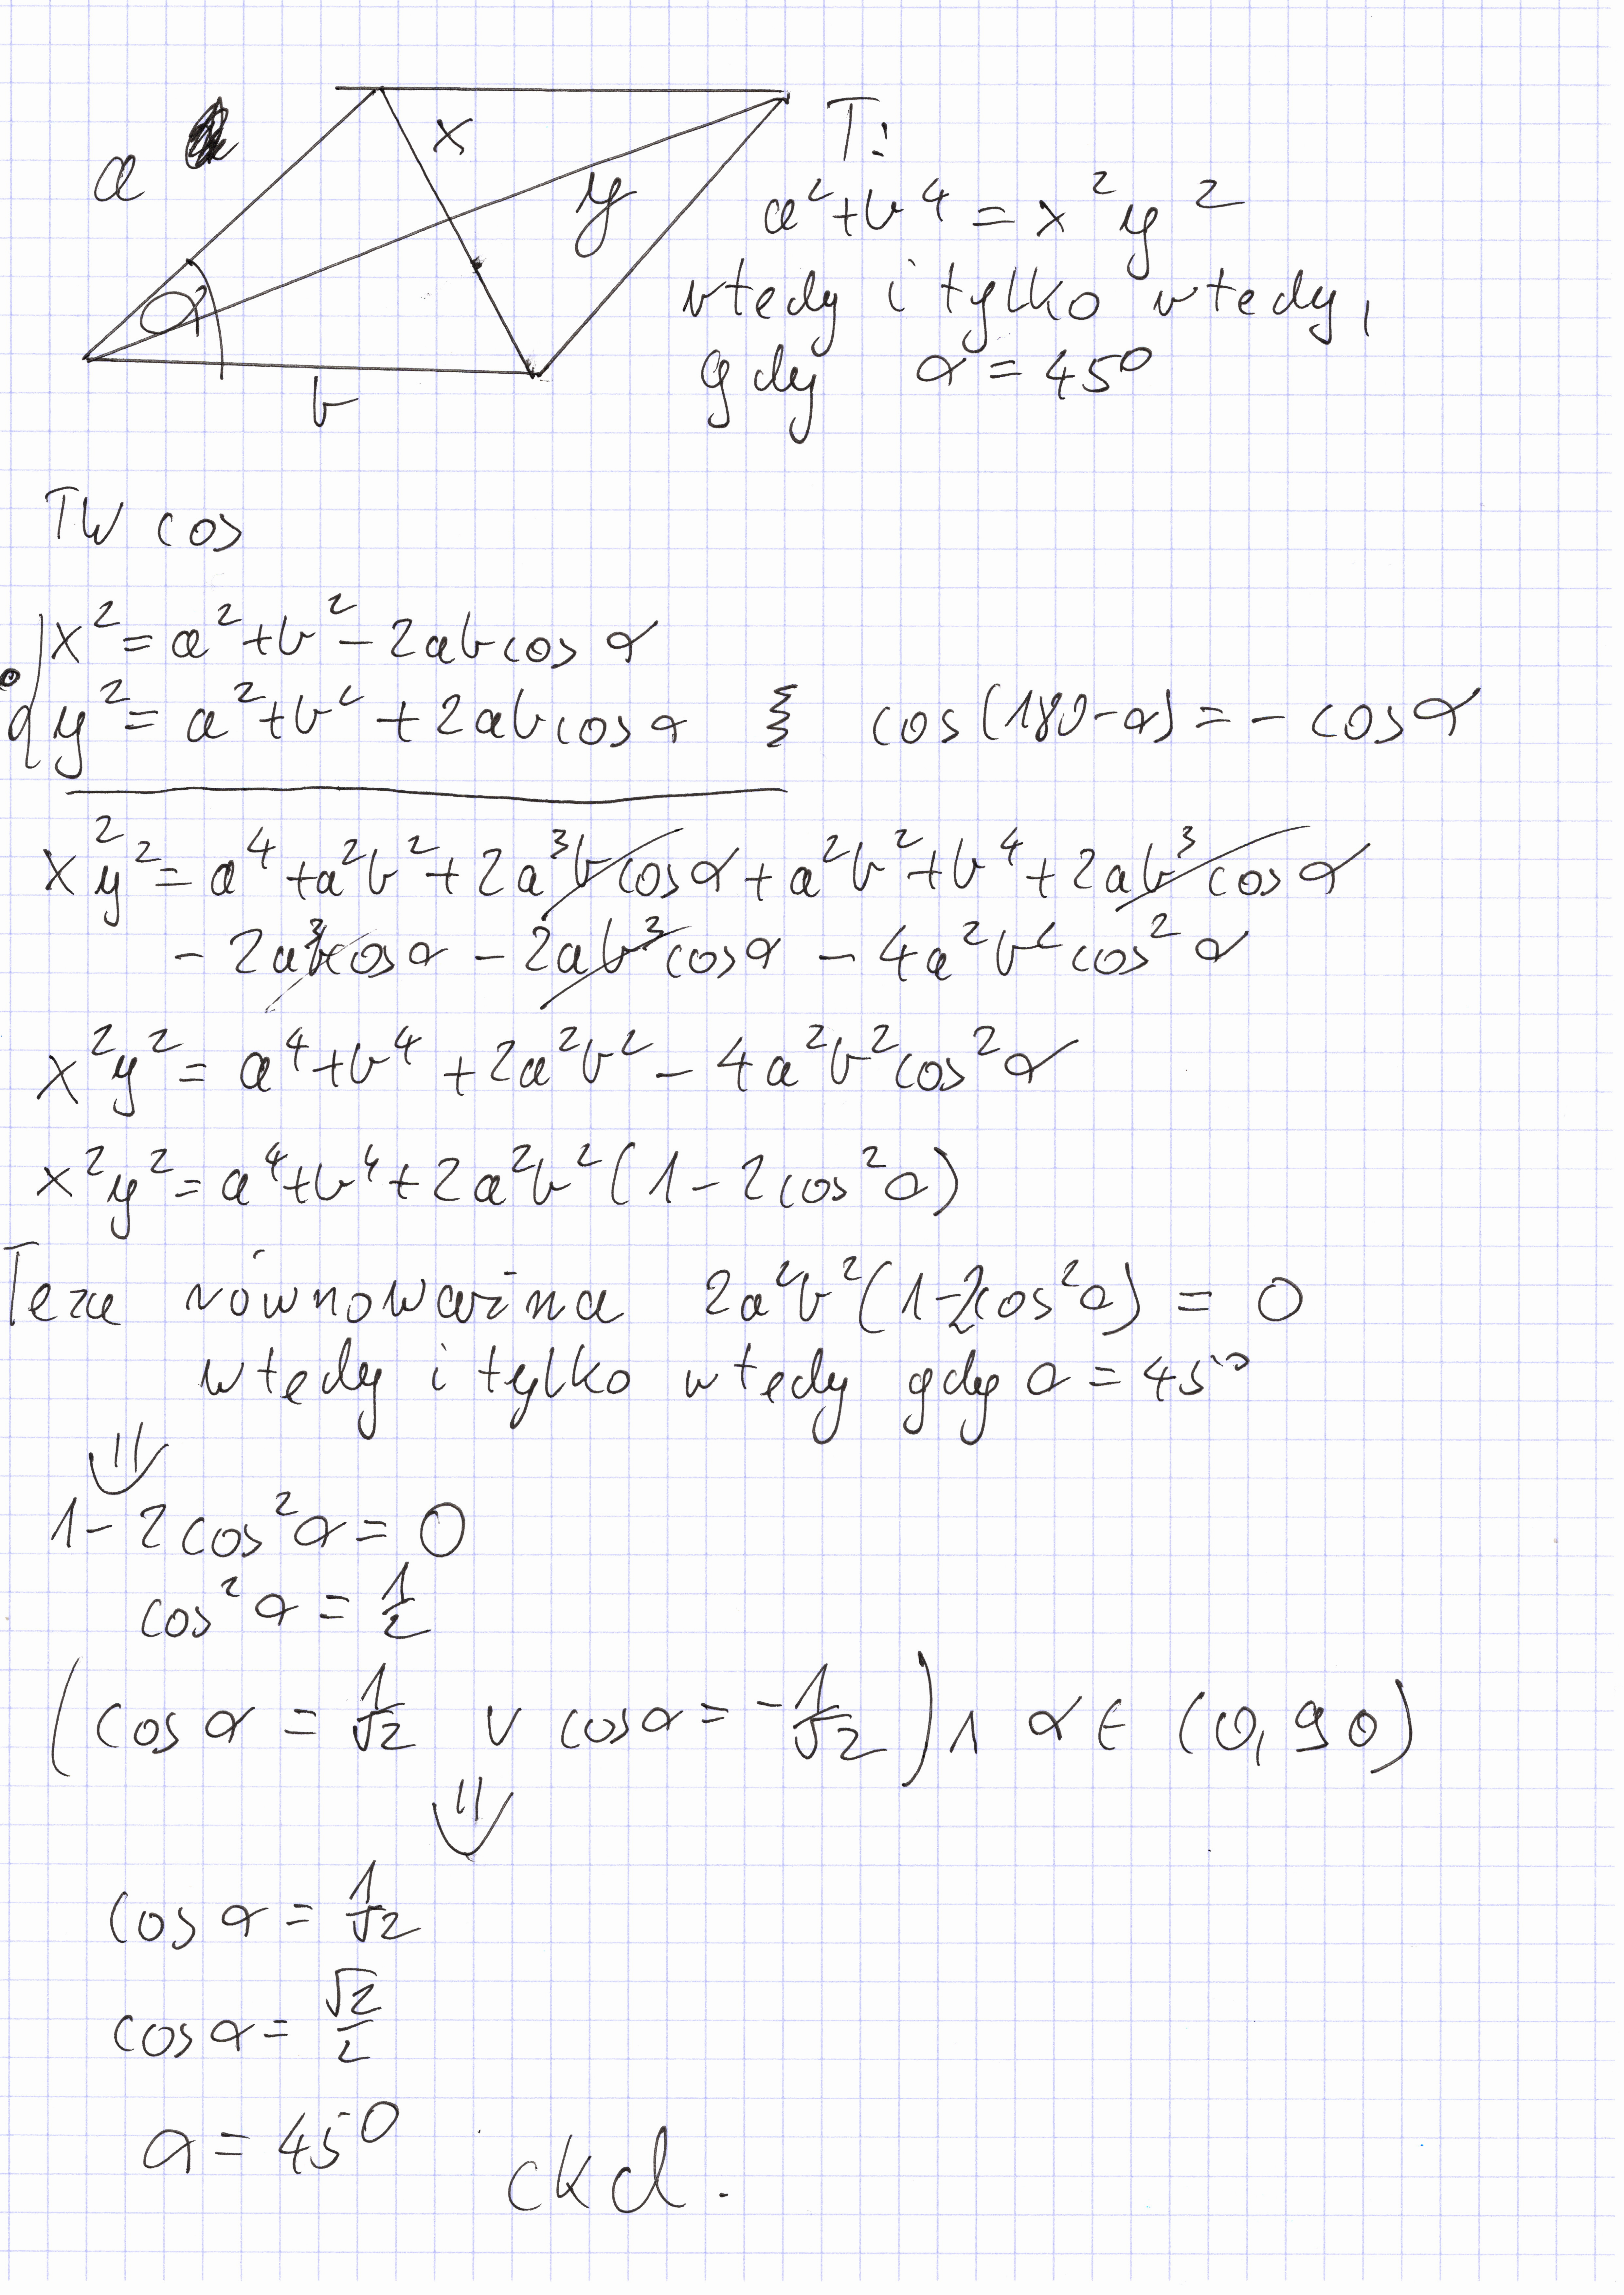 a
x
y
α
b
T:
a²+b⁴ = x²y²
wtedy i tylko wtedy,
gdy α = 45⁰
TW cos
x² = a²+b² - 2ab cos α
y² = a²+b² + 2ab cos α cos(180-α) = - cos α
x²y² = a⁴ + a²b² + 2a³b cos α + a²b² + b⁴ + 2ab³ cos α
- 2a³b cos α - 2ab³ cos α - 4a²b² cos² α
x²y² = a⁴+b⁴ + 2a²b² - 4a²b² cos² α
x²y² = a⁴+b⁴+2a²b²(1-2cos²α)
Teza równoważna 2a²b²(1-2cos²α) = 0
wtedy i tylko wtedy gdy α = 45⁰
⇓
1-2cos²α = 0
cos²α = 1/2
(cos α = 1/√2 ∨ cos α = -1/√2) ∧ α ∈ (0,90)
⇓
cos α = 1/√2
cos α = √2/2
α = 45⁰
ckd.